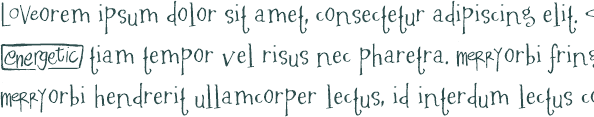 Loveorem ipsum dolor sit amet, consectetur adipiscing elit.
energetic tiam tempor vel risus nec pharetra. merryorbi fring
merryorbi hendrerit ullamcorper lectus, id interdum lectus co